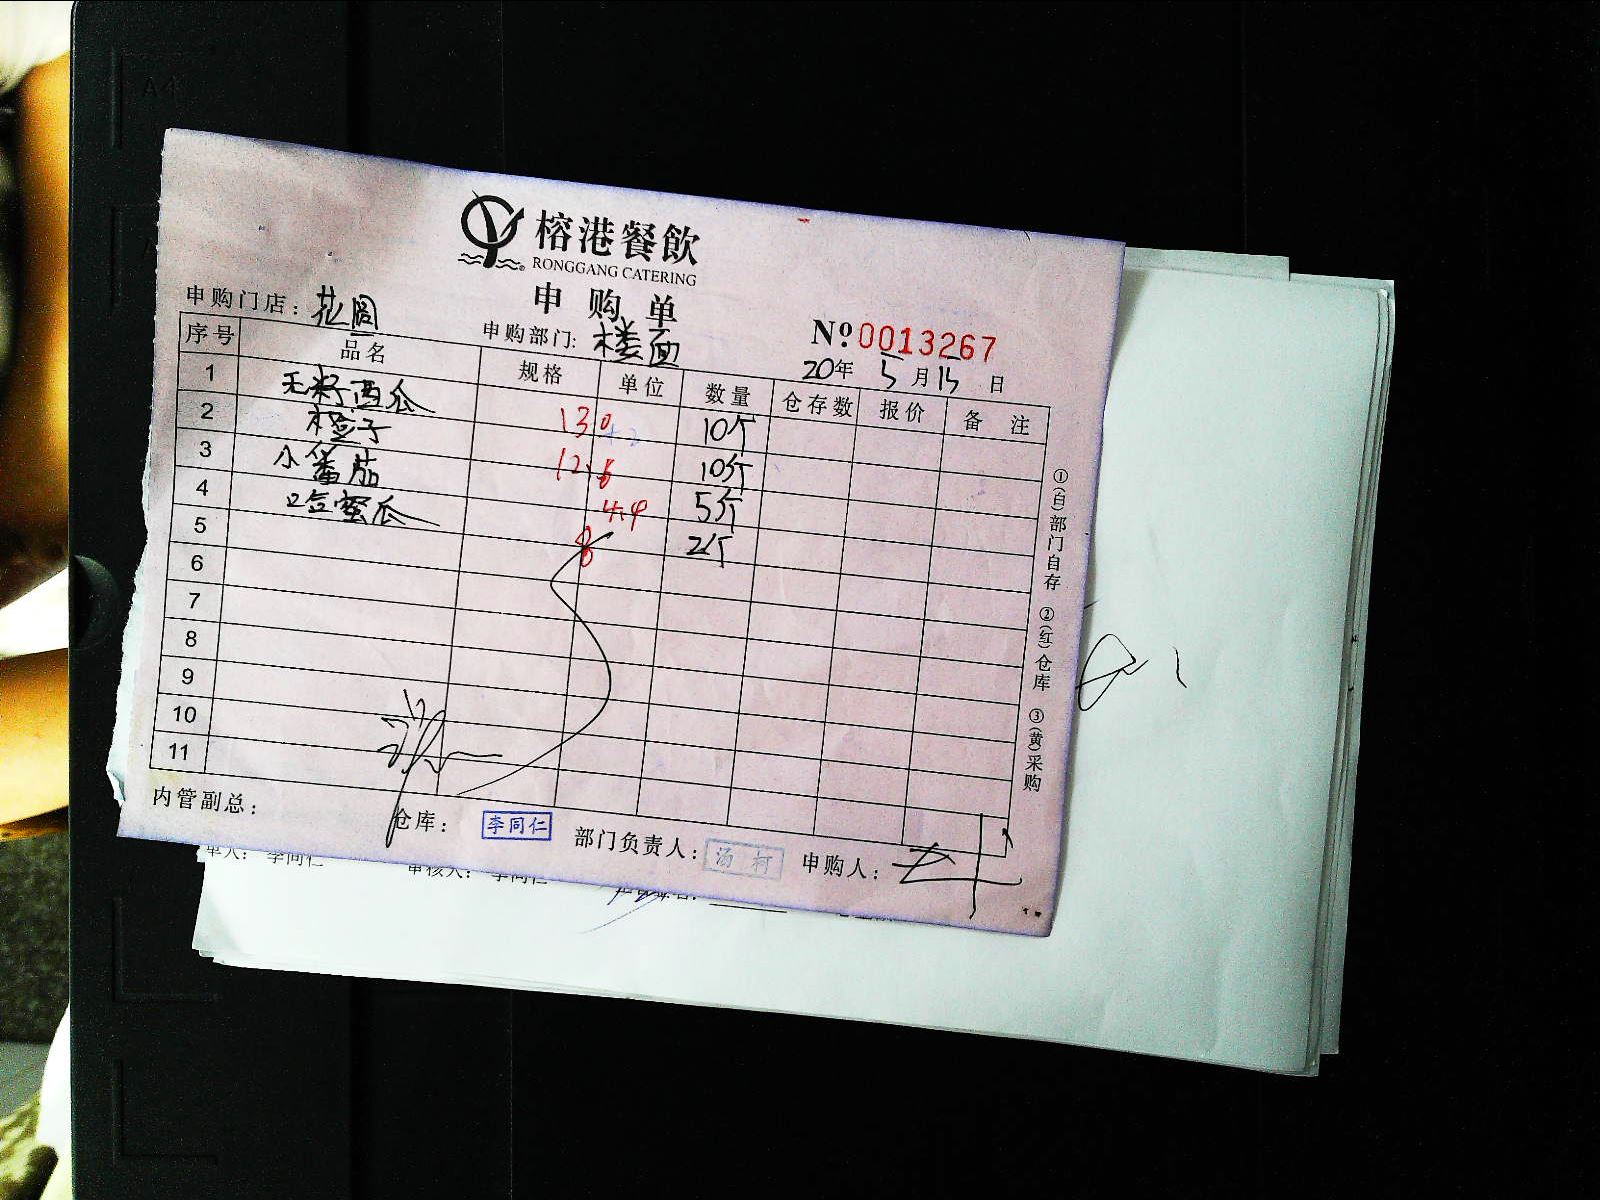 榕港餐飲
RONGGANG CATERING
申购单
申购门店：花阁 申购部门：楼面 №0013267
20年5月15日
序号 品名 规格 单位 数量 仓存数 报价 备注
1 无籽西瓜 130 10斤
2 橙子 12.6 10斤
3 小番茄 4.9 5斤
4 哈蜜瓜 8 2斤
5
6
7
8
9
10
11
①(白)部门自存 ②(红)仓库 ③(黄)采购
内管副总： 仓库：李同仁 部门负责人：汤柯 申购人：
单人：李同仁 审核人：李同仁
A4